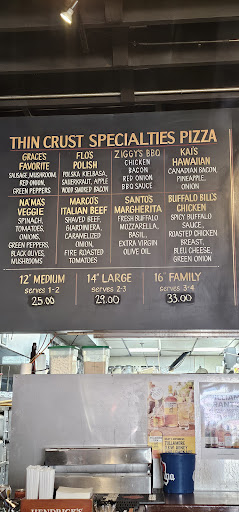 THIN CRUST SPECIALTIES PIZZA
GRACE'S
FAVORITE
SAUSAGE, MUSHROOM,
RED ONION,
GREEN PEPPERS
FLO'S
POLISH
POLSKA KIELBASA,
SAUERKRAUT, APPLE
WOOD SMOKED BACON
ZIGGY'S BBQ
CHICKEN
BACON
RED ONION
BBQ SAUCE
KAI'S
HAWAIIAN
CANADIAN BACON,
PINEAPPLE,
ONION
NA'MA'S
VEGGIE
SPINACH,
TOMATOES,
ONIONS,
GREEN PEPPERS,
BLACK OLIVES,
MUSHROOMS
MARCO'S
ITALIAN BEEF
SHAVED BEEF,
GIARDINIERA,
CARAMELIZED
ONION,
FIRE ROASTED
TOMATOES
SANTO'S
MARGHERITA
FRESH BUFFALO
MOZZARELLA,
BASIL,
EXTRA VIRGIN
OLIVE OIL
BUFFALO BILL'S
CHICKEN
SPICY BUFFALO
SAUCE,
ROASTED CHICKEN
BREAST,
BLEU CHEESE,
GREEN ONION
12" MEDIUM
serves 1-2
25.00
14" LARGE
serves 2-3
29.00
16" FAMILY
serves 3-4
33.00
TULLAMORE
HENDRICK'S